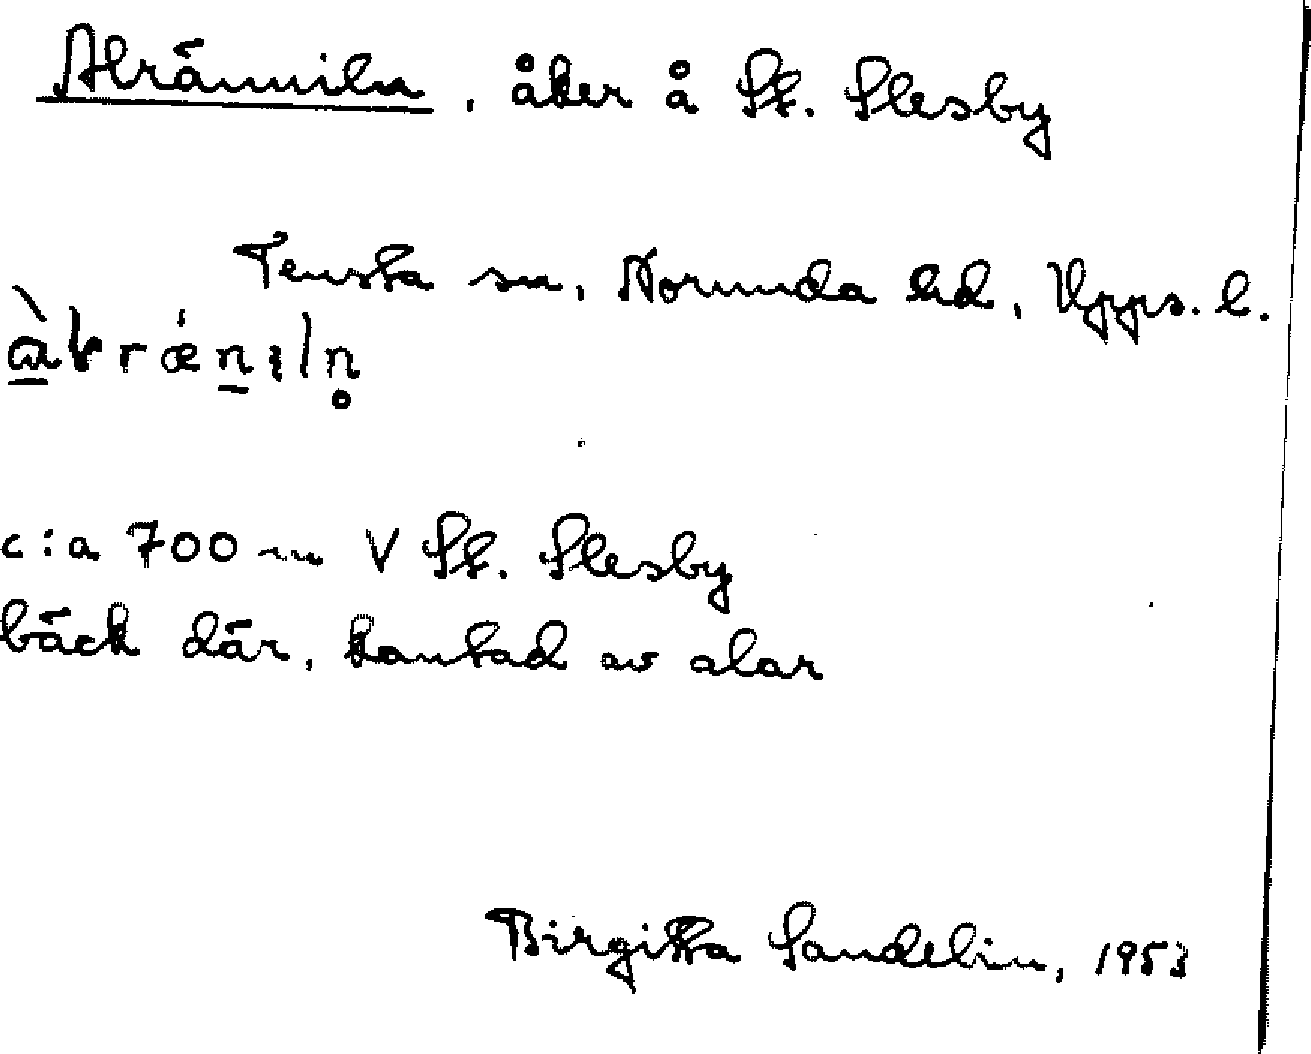 Alränniln, åker å St. Slesby
Tensta sn, Norunda hd, Upps. l.
c:a 700 m V St. Slesby
bäck där, kantad av alar
Birgitta Sandelin, 1953